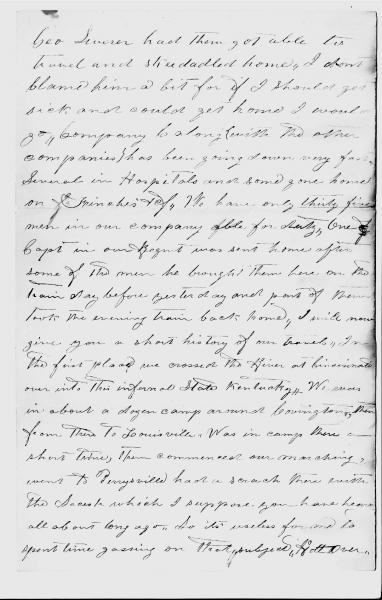 Geo Severer had then got able to
travel and skedadled home, I dont
blame him a bit for if I should get
sick and could get home I would
go, Company C along (with the other
companies) has been going down very fast
Several in Hospitals and some gone home
on We have only thirty five
men in our company able for duty, One
Capt in our Regmt was sent home after
some of the men he brought them here on the
train day before yesterday and part of them
took the evening train back home, I will now
give you a short history of our travels, In
the first place we crossed the River at Cincinnati
over into this infernal State Kentucky, We was
in about a dozen camp around Covington, then
from there to Louisville. Was in camp there a
short time, then commenced our marching,
went to Perrysville had a scrach there with
the Secesh which I suppose you have heard
all about long ago, So its useless for me to
spent time gassing on that subject,